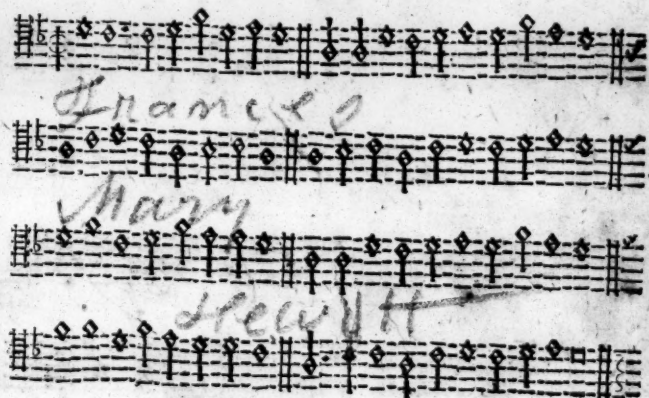 Frances
Mary
Hewytt